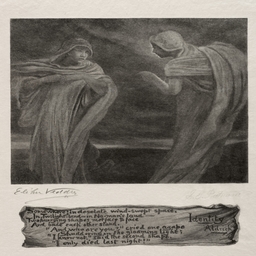 Elihu Vedder
Somewhere in desolate wind-swept space,
In Twilight-land in No-man's-land—
Two hurrying Shapes met face to face
And bade each other stand.
"And who are you?" cried one agape
Shuddering in the gloaming light;
"I know not," said the second Shape,
"I only died last night."
Identity
Aldrich